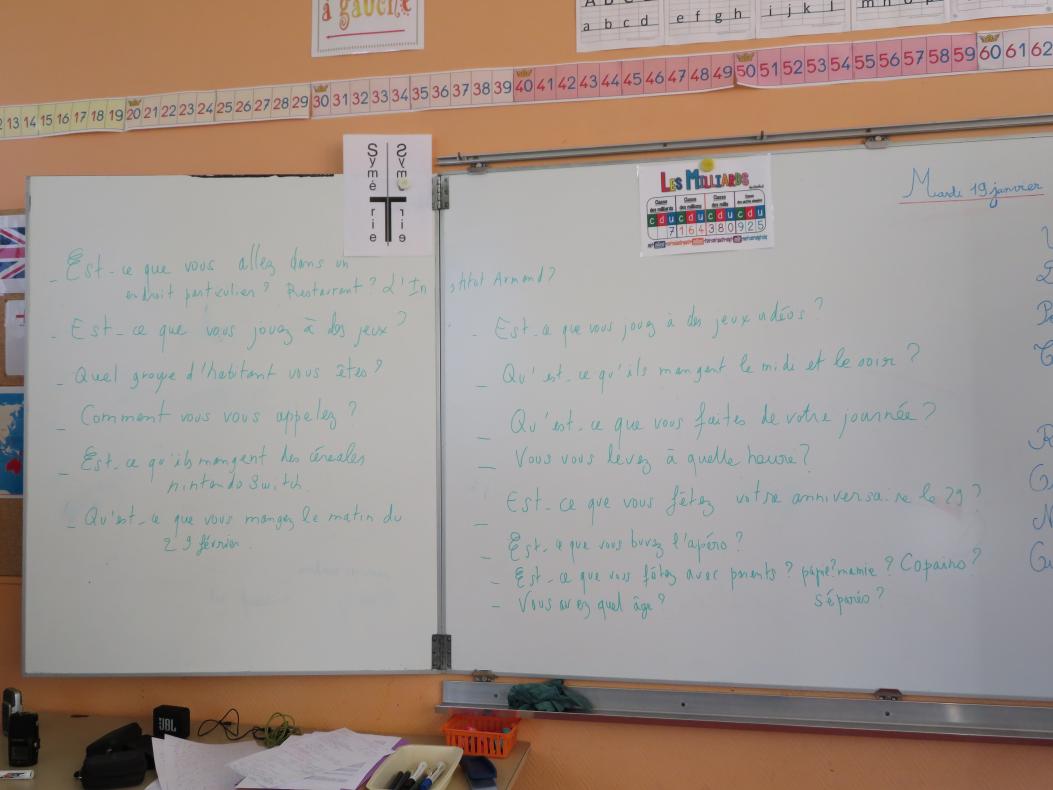 à gauche
A b c d
a b c d
e f g h
i j k l
13 14 15 16 17 18 19 20 21 22 23 24 25 26 27 28 29 30 31 32 33 34 35 36 37 38 39 40 41 42 43 44 45 46 47 48 49 50 51 52 53 54 55 56 57 58 59 60 61 62
Symétrie
LES MILLIARDS
Classe des milliards Classe des millions Classe des mille
c d u c d u c d u c d u
7 1 6 4 3 8 0 9 2 5
Mardi 19 janvier
- Est-ce que vous allez dans un
endroit particulier? Restaurant? L'Institut Armand?
- Est-ce que vous jouez à des jeux?
- Quel groupe d'habitant vous êtes?
- Comment vous vous appelez?
- Est-ce qu'ils mangent des céréales
nintendo Switch.
- Qu'est-ce que vous mangez le matin du
29 février.
- Est-ce que vous jouez à des jeux vidéos?
- Qu'est-ce qu'ils mangent le midi et le soir?
- Qu'est-ce que vous faites de votre journée?
- Vous vous levez à quelle heure?
- Est-ce que vous fêtez votre anniversaire le 29?
- Est-ce que vous buvez l'apéro?
- Est-ce que vous fêtez avec parents? papie? mamie? Copains?
séparés?
- Vous avez quel âge?
JBL